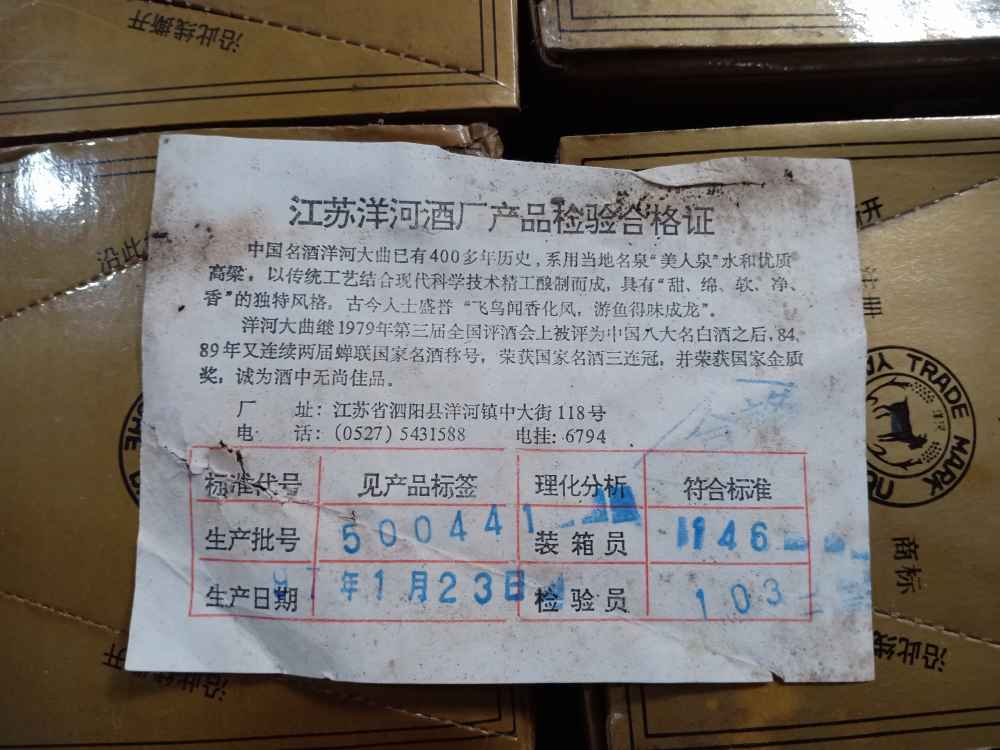 沿此线撕开
江苏洋河酒厂产品检验合格证
中国名酒洋河大曲已有400多年历史,系用当地名泉“美人泉”水和优质
高粱,以传统工艺结合现代科学技术精工酿制而成,具有“甜、绵、软、净、
香”的独特风格,古今人士盛誉“飞鸟闻香化凤,游鱼得味成龙”。
洋河大曲继1979年第三届全国评酒会上被评为中国八大名白酒之后,84、
89年又连续两届蝉联国家名酒称号,荣获国家名酒三连冠,并荣获国家金质
奖,诚为酒中无尚佳品。
厂 址:江苏省泗阳县洋河镇中大街118号
电 话:(0527)5431588 电挂:6794
标准代号 见产品标签 理化分析 符合标准
生产批号 500441 装箱员 1146
生产日期 年1月23日 检验员 103
沿此
开
注册
TRADE MARK
商标
沿此线撕开
沿此线